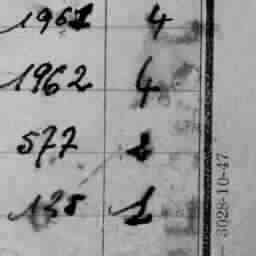 1961 4
1962 4
577
138 1
3028-10-47